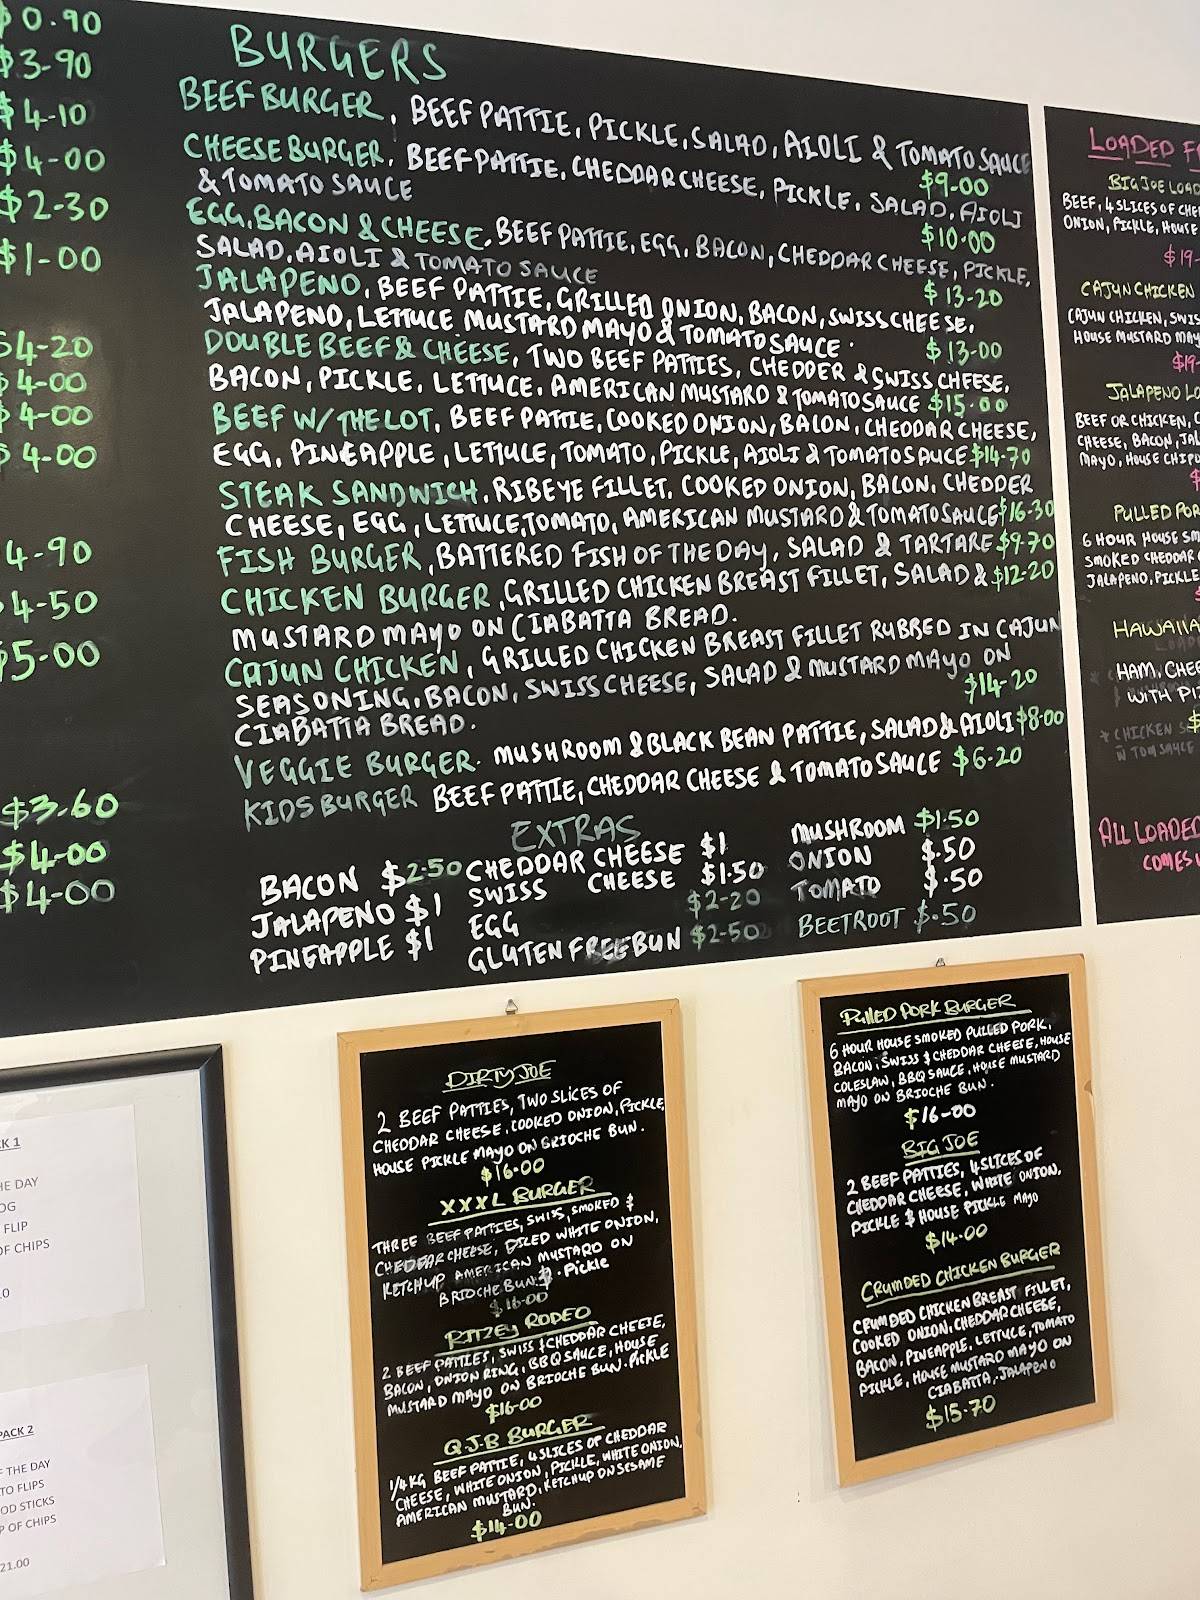 $0.90
$3-90
$4-10
$4-00
$2-30
$1-00
$4-20
$4-00
$4-00
$4-00
4-90
4-50
$5-00
$3.60
$4-00
$4-00
BURGERS
BEEF BURGER, BEEF PATTIE, PICKLE, SALAD, AIOLI & TOMATO SAUCE
$9-00
CHEESE BURGER, BEEF PATTIE, CHEDDAR CHEESE, PICKLE, SALAD, AIOLI
& TOMATO SAUCE $10-00
EGG, BACON & CHEESE, BEEF PATTIE, EGG, BACON, CHEDDAR CHEESE, PICKLE,
SALAD, AIOLI & TOMATO SAUCE $13-20
JALAPENO, BEEF PATTIE, GRILLED ONION, BACON, SWISS CHEESE,
JALAPENO, LETTUCE MUSTARD MAYO & TOMATO SAUCE. $13-00
DOUBLE BEEF & CHEESE, TWO BEEF PATTIES, CHEDDER & SWISS CHEESE,
BACON, PICKLE, LETTUCE, AMERICAN MUSTARD & TOMATO SAUCE $15-00
BEEF W/ THE LOT, BEEF PATTIE, COOKED ONION, BACON, CHEDDAR CHEESE,
EGG, PINEAPPLE, LETTUCE, TOMATO, PICKLE, AIOLI & TOMATO SAUCE $14-70
STEAK SANDWICH, RIBEYE FILLET, COOKED ONION, BACON, CHEDDER
CHEESE, EGG, LETTUCE, TOMATO, AMERICAN MUSTARD & TOMATO SAUCE $16-30
FISH BURGER, BATTERED FISH OF THE DAY, SALAD & TARTARE $9-70
CHICKEN BURGER, GRILLED CHICKEN BREAST FILLET, SALAD & $12-20
MUSTARD MAYO ON CIABATTA BREAD.
CAJUN CHICKEN, GRILLED CHICKEN BREAST FILLET RUBBED IN CAJUN
SEASONING, BACON, SWISS CHEESE, SALAD & MUSTARD MAYO ON
CIABATTA BREAD. $14-20
VEGGIE BURGER. MUSHROOM & BLACK BEAN PATTIE, SALAD & AIOLI $8-00
KIDS BURGER BEEF PATTIE, CHEDDAR CHEESE & TOMATO SAUCE $6-20
EXTRAS
BACON $2-50
JALAPENO $1
PINEAPPLE $1
CHEDDAR CHEESE $1
SWISS CHEESE $1.50
EGG $2-20
GLUTEN FREE BUN $2-50
MUSHROOM $1.50
ONION $.50
TOMATO $.50
BEETROOT $.50
LOADED F
BIG JOE LOAD
BEEF, 4 SLICES OF CHE
ONION, PICKLE, HOUSE
$19-
CAJUN CHICKEN
CAJUN CHICKEN, SWIS
HOUSE MUSTARD MAY
$19-
JALAPENO LO
BEEF OR CHICKEN, C
CHEESE, BACON, JAL
MAYO, HOUSE CHIPO
$
PULLED POR
6 HOUR HOUSE SM
SMOKED CHEDDAR
JALAPENO, PICKLE
HAWAIIA
HAM, CHEE
WITH P
* CHICKEN S
W TOM SAUCE
ALL LOADED
COMES
DIRTY JOE
2 BEEF PATTIES, TWO SLICES OF
CHEDDAR CHEESE, COOKED ONION, PICKLE,
HOUSE PICKLE MAYO ON BRIOCHE BUN.
$16-00
XXXL BURGER
THREE BEEF PATTIES, SWISS, SMOKED &
CHEDDAR CHEESE, DICED WHITE ONION,
KETCHUP AMERICAN MUSTARD ON
BRIOCHE BUN. PICKLE
$16-00
RITZEY RODEO
2 BEEF PATTIES, SWISS & CHEDDAR CHEESE,
BACON, ONION RING, BBQ SAUCE, HOUSE
MUSTARD MAYO ON BRIOCHE BUN. PICKLE
$16-00
Q.J.B BURGER
1/4 KG BEEF PATTIE, 4 SLICES OF CHEDDAR
CHEESE, WHITE ONION, PICKLE, WHITE ONION,
AMERICAN MUSTARD, KETCHUP ON SESAME
BUN.
$14-00
PULLED PORK BURGER
6 HOUR HOUSE SMOKED PULLED PORK,
BACON, SWISS & CHEDDAR CHEESE, HOUSE
COLESLAW, BBQ SAUCE, HOUSE MUSTARD
MAYO ON BRIOCHE BUN.
$16-00
BIG JOE
2 BEEF PATTIES, 4 SLICES OF
CHEDDAR CHEESE, WHITE ONION,
PICKLE & HOUSE PICKLE MAYO
$14-00
CRUMDED CHICKEN BURGER
CRUMDED CHICKEN BREAST FILLET,
COOKED ONION, CHEDDAR CHEESE,
BACON, PINEAPPLE, LETTUCE, TOMATO
PICKLE, HOUSE MUSTARD MAYO ON
CIABATTA, JALAPENO
$15-70
K 1
HE DAY
OG
FLIP
OF CHIPS
.0
PACK 2
THE DAY
TO FLIPS
OD STICKS
P OF CHIPS
21.00